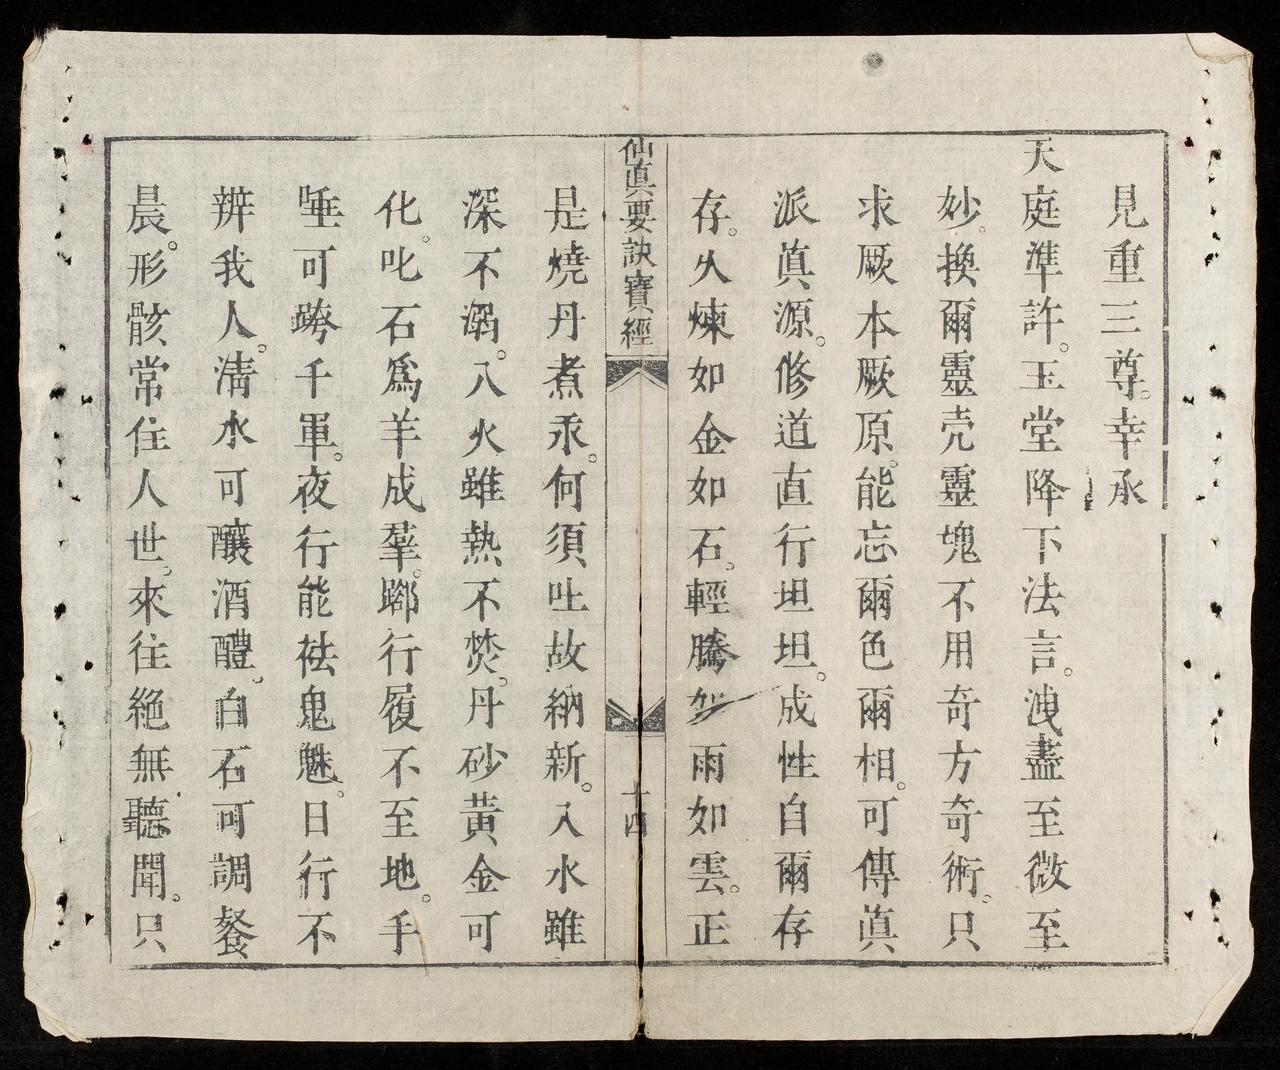 見重三尊。幸承
天庭準許。玉堂降下法言。洩盡至微至
妙。換爾靈壳靈塊不用奇方奇術。只
求厥本厥原。能忘爾色爾相。可傳眞
派眞源。修道直行坦坦。成性自爾存
存。火煉如金如石。輕騰如雨如雲。正
仙眞要訣寶經
十四
是燒丹煮汞。何須吐故納新。入水雖
深不溺。入火雖熱不焚。丹砂黃金可
化。叱石爲羊成羣。躑行履不至地。手
唾可跨千軍。夜行能祛鬼魅。日行不
辨我人。淸水可釀酒醴。白石可調餐
晨。形骸常住人世。來往絕無聽聞。只